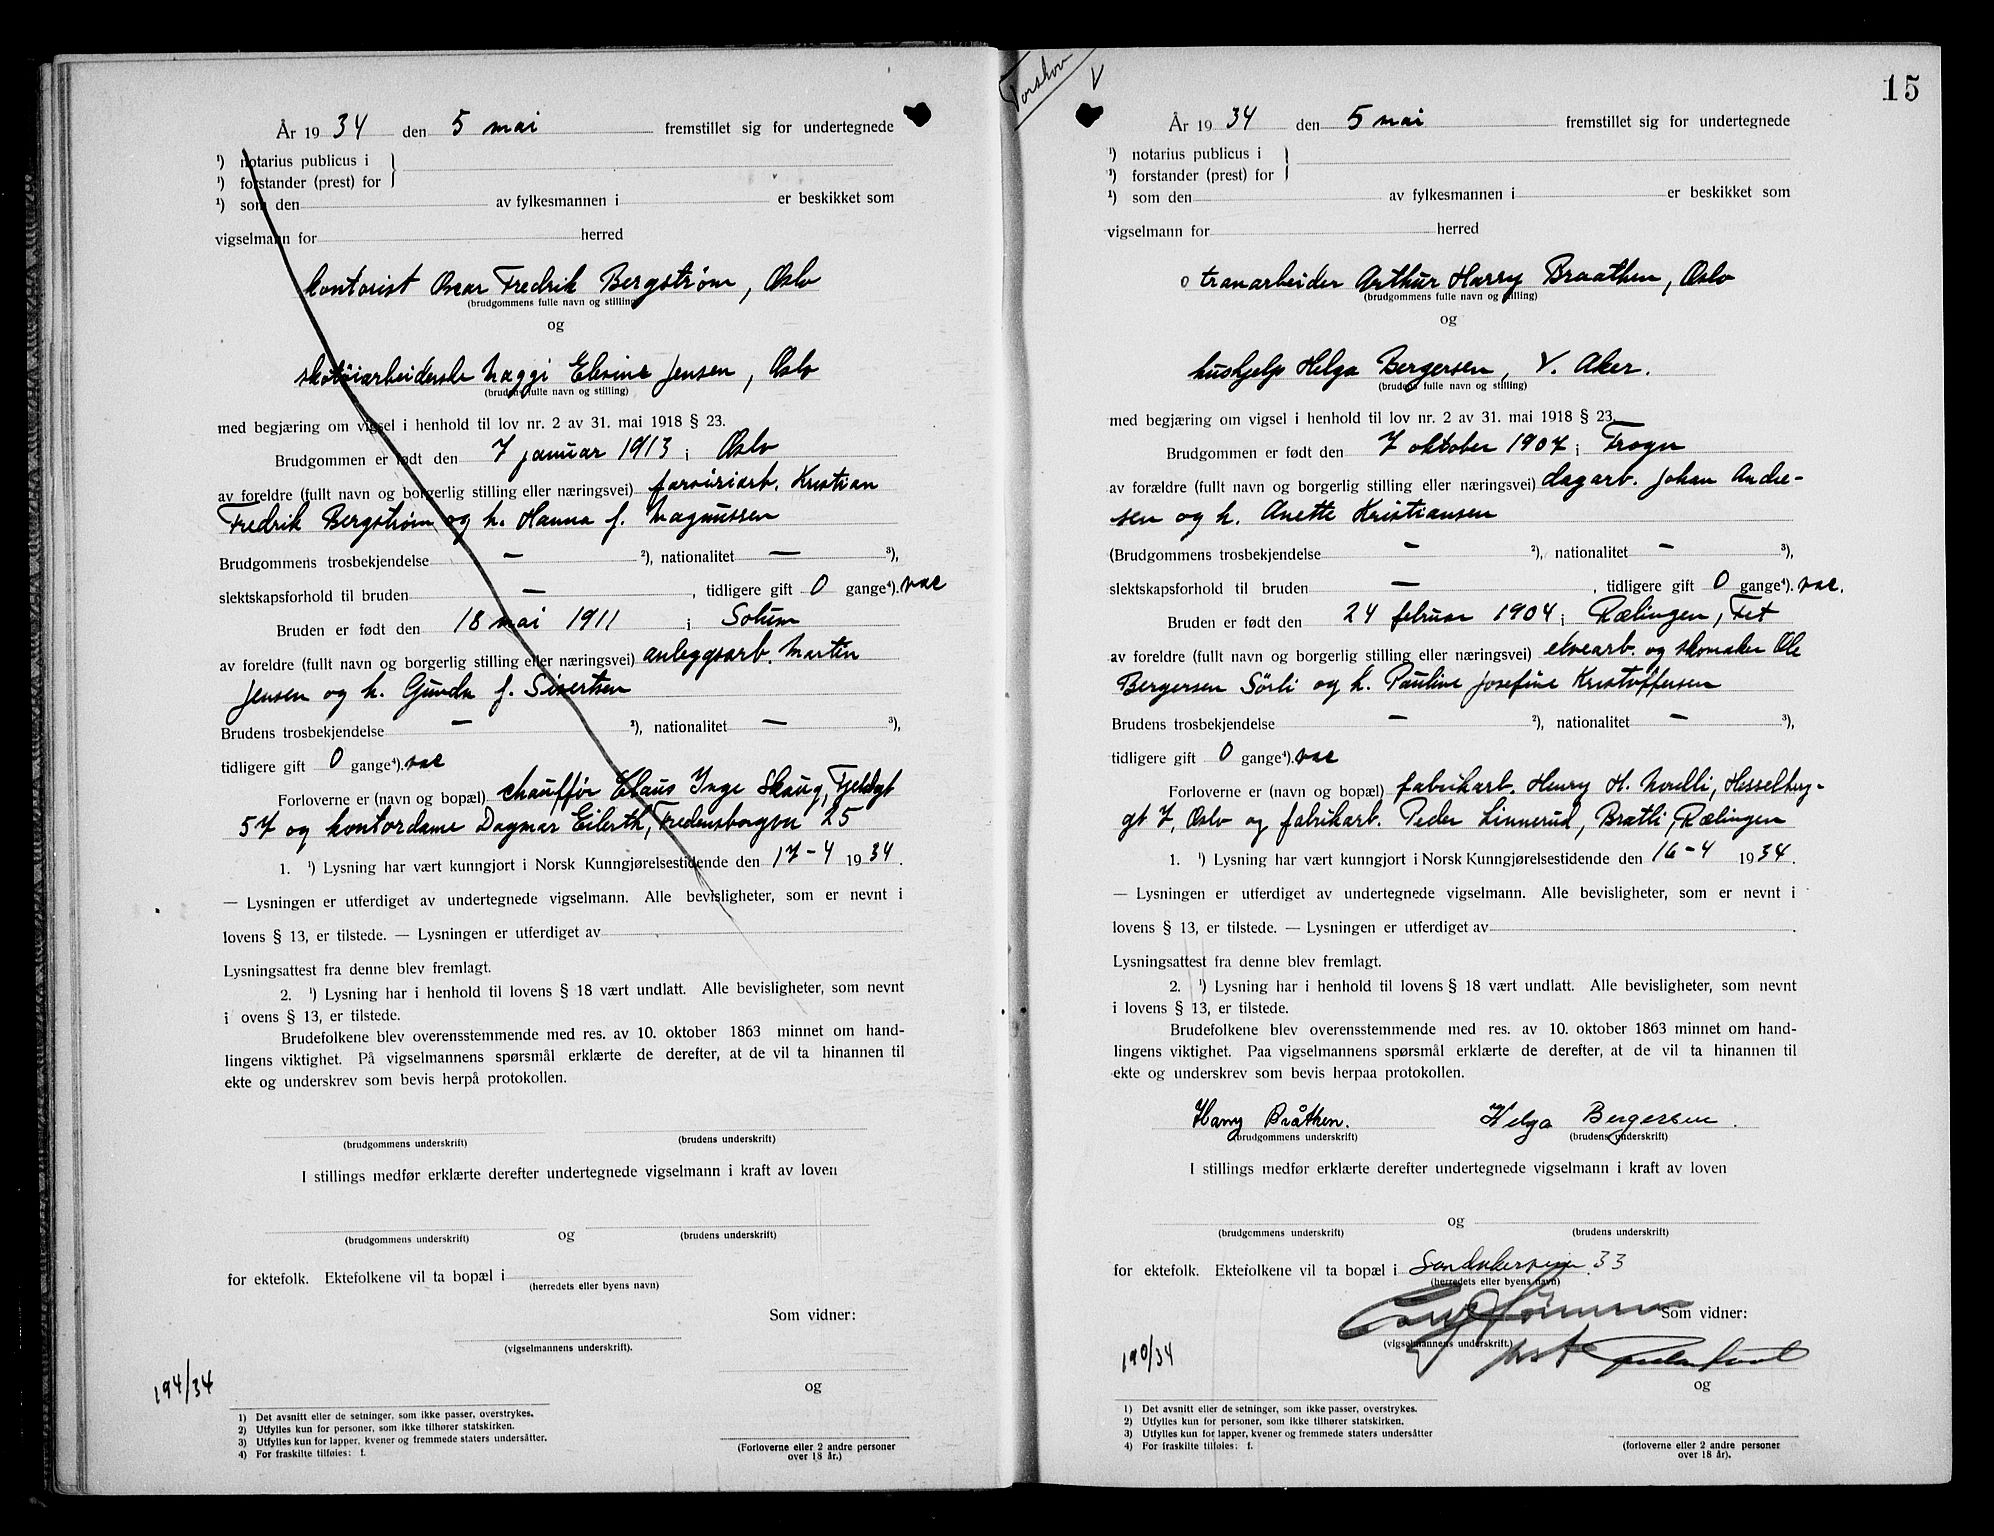 År 1934 den 5 mai fremstillet sig for undertegnede
¹) notarius publicus i
¹) forstander (prest) for
¹) som den av fylkesmannen i er beskikket som
vigselmann for herred
kontorist Oscar Fredrik Bergstrøm, Oslo
(brudgommens fulle navn og stilling)
og
skotøiarbeiderske Maggi Elvine Jensen, Oslo
(brudens fulle navn og stilling)
med begjæring om vigsel i henhold til lov nr. 2 av 31. mai 1918 § 23.
Brudgommen er født den 7 januar 1913 i Oslo
av foreldre (fullt navn og borgerlig stilling eller næringsvei) farveriarb. Kristian
Fredrik Bergstrøm og h. Hanna f. Magnussen
Brudgommens trosbekjendelse — ²), nationalitet — ³),
slektskapsforhold til bruden — , tidligere gift 0 gange⁴). vac
Bruden er født den 18 mai 1911 i Solum
av foreldre (fullt navn og borgerlig stilling eller næringsvei) anleggsarb. Martin
Jensen og h. Gunda f. Sivertsen
Brudens trosbekjendelse — ²), nationalitet — ³),
tidligere gift 0 gange⁴). vac
Forloverne er (navn og bopæl) chauffør Claus Inge Skaug,
57 og kontordame Dagmar Eilerth, Fredensborgvn 25
1. ¹) Lysning har vært kunngjort i Norsk Kunngjørelsestidende den 17-4 1934.
— Lysningen er utferdiget av undertegnede vigselmann. Alle bevisligheter, som er nevnt i
lovens § 13, er tilstede. — Lysningen er utferdiget av
Lysningsattest fra denne blev fremlagt.
2. ¹) Lysning har i henhold til lovens § 18 vært undlatt. Alle bevisligheter, som nevnt
i ovens § 13, er tilstede.
Brudefolkene blev overensstemmende med res. av 10. oktober 1863 minnet om hand-
lingens viktighet. På vigselmannens spørsmål erklærte de derefter, at de vil ta hinannen til
ekte og underskrev som bevis herpå protokollen.
(brudgommens underskrift) (brudens underskrift)
I stillings medfør erklærte derefter undertegnede vigselmann i kraft av loven
og
(brudgommens underskrift) (brudens underskrift)
for ektefolk. Ektefolkene vil ta bopæl i
(herredets eller byens navn)
Som vidner:
(vigselmannens underskrift).
194/34
og
1) Det avsnitt eller de setninger, som ikke passer, overstrykes.
2) Utfylles kun for personer, som ikke tilhører statskirken.
3) Utfylles kun for lapper, kvener og fremmede staters undersåtter.
4) For fraskilte tilføies: f.
(Forloverne eller 2 andre personer
over 18 år.)
Torshov
15
År 1934 den 5 mai fremstillet sig for undertegnede
¹) notarius publicus i
¹) forstander (prest) for
¹) som den av fylkesmannen i er beskikket som
vigselmann for herred
tranarbeider Arthur Harry Braathen, Oslo
(brudgommens fulle navn og stilling)
og
hushjelp Helga Bergersen, V. Aker.
(brudens fulle navn og stilling)
med begjæring om vigsel i henhold til lov nr. 2 av 31. mai 1918 § 23.
Brudgommen er født den 7 oktober 1907 i
av forældre (fullt navn og borgerlig stilling eller næringsvei) dagarb. Johan Andre-
sen og h. Anette Kristiansen
(Brudgommens trosbekjendelse — ²), nationalitet — ³),
slektskapsforhold til bruden — , tidligere gift 0 gange⁴). vac.
Bruden er født den 24 februar 1904 i Rælingen, Fet
av foreldre (fullt navn og borgerlig stilling eller næringsvei) elvearb. og skomaker Ole
Bergersen Sörli og h. Pauline Josefine Kristoffersen
Brudens trosbekjendelse — ²), nationalitet — ³),
tidligere gift 0 gange⁴). vac
Forloverne er (navn og bopæl) fabrikarb. Henry H. Norelli, Hesselberg-
gt 7, Oslo og fabrikarb. Peder Linnerud, Bratli, Rælingen
1. ¹) Lysning har vært kunngjort i Norsk Kunngjørelsestidende den 16-4 1934.
— Lysningen er utferdiget av undertegnede vigselmann. Alle bevisligheter, som er nevnt i
lovens § 13, er tilstede. — Lysningen er utferdiget av
Lysningsattest fra denne blev fremlagt.
2. ¹) Lysning har i henhold til lovens § 18 vært undlatt. Alle bevisligheter, som nevnt
i lovens § 13, er tilstede.
Brudefolkene blev overensstemmende med res. av 10. oktober 1863 minnet om hand-
lingens viktighet. Paa vigselmannens spørsmål erklærte de derefter, at de vil ta hinannen til
ekte og underskrev som bevis herpaa protokollen.
Harry Bråthen. Helga Bergersen.
(brudgommens underskrift) (brudens underskrift)
I stillings medfør erklærte derefter undertegnede vigselmann i kraft av loven
og
(brudgommens underskrift) (brudens underskrift)
for ektefolk. Ektefolkene vil ta bopæl i Sandakerveien 33
(herredets eller byens navn)
Som vidner:
(vigselmannens underskrift.)
190/34
og
1) Det avsnitt eller de setninger, som ikke passer, overstrykes.
2) Utfylles kun for personer, som ikke tilhører statskirken.
3) Utfylles kun for lapper, kvener og fremmede staters undersåtter
4) For fraskilte tilføies: f.
(forloverne eller 2 andre personer
over 18 år).